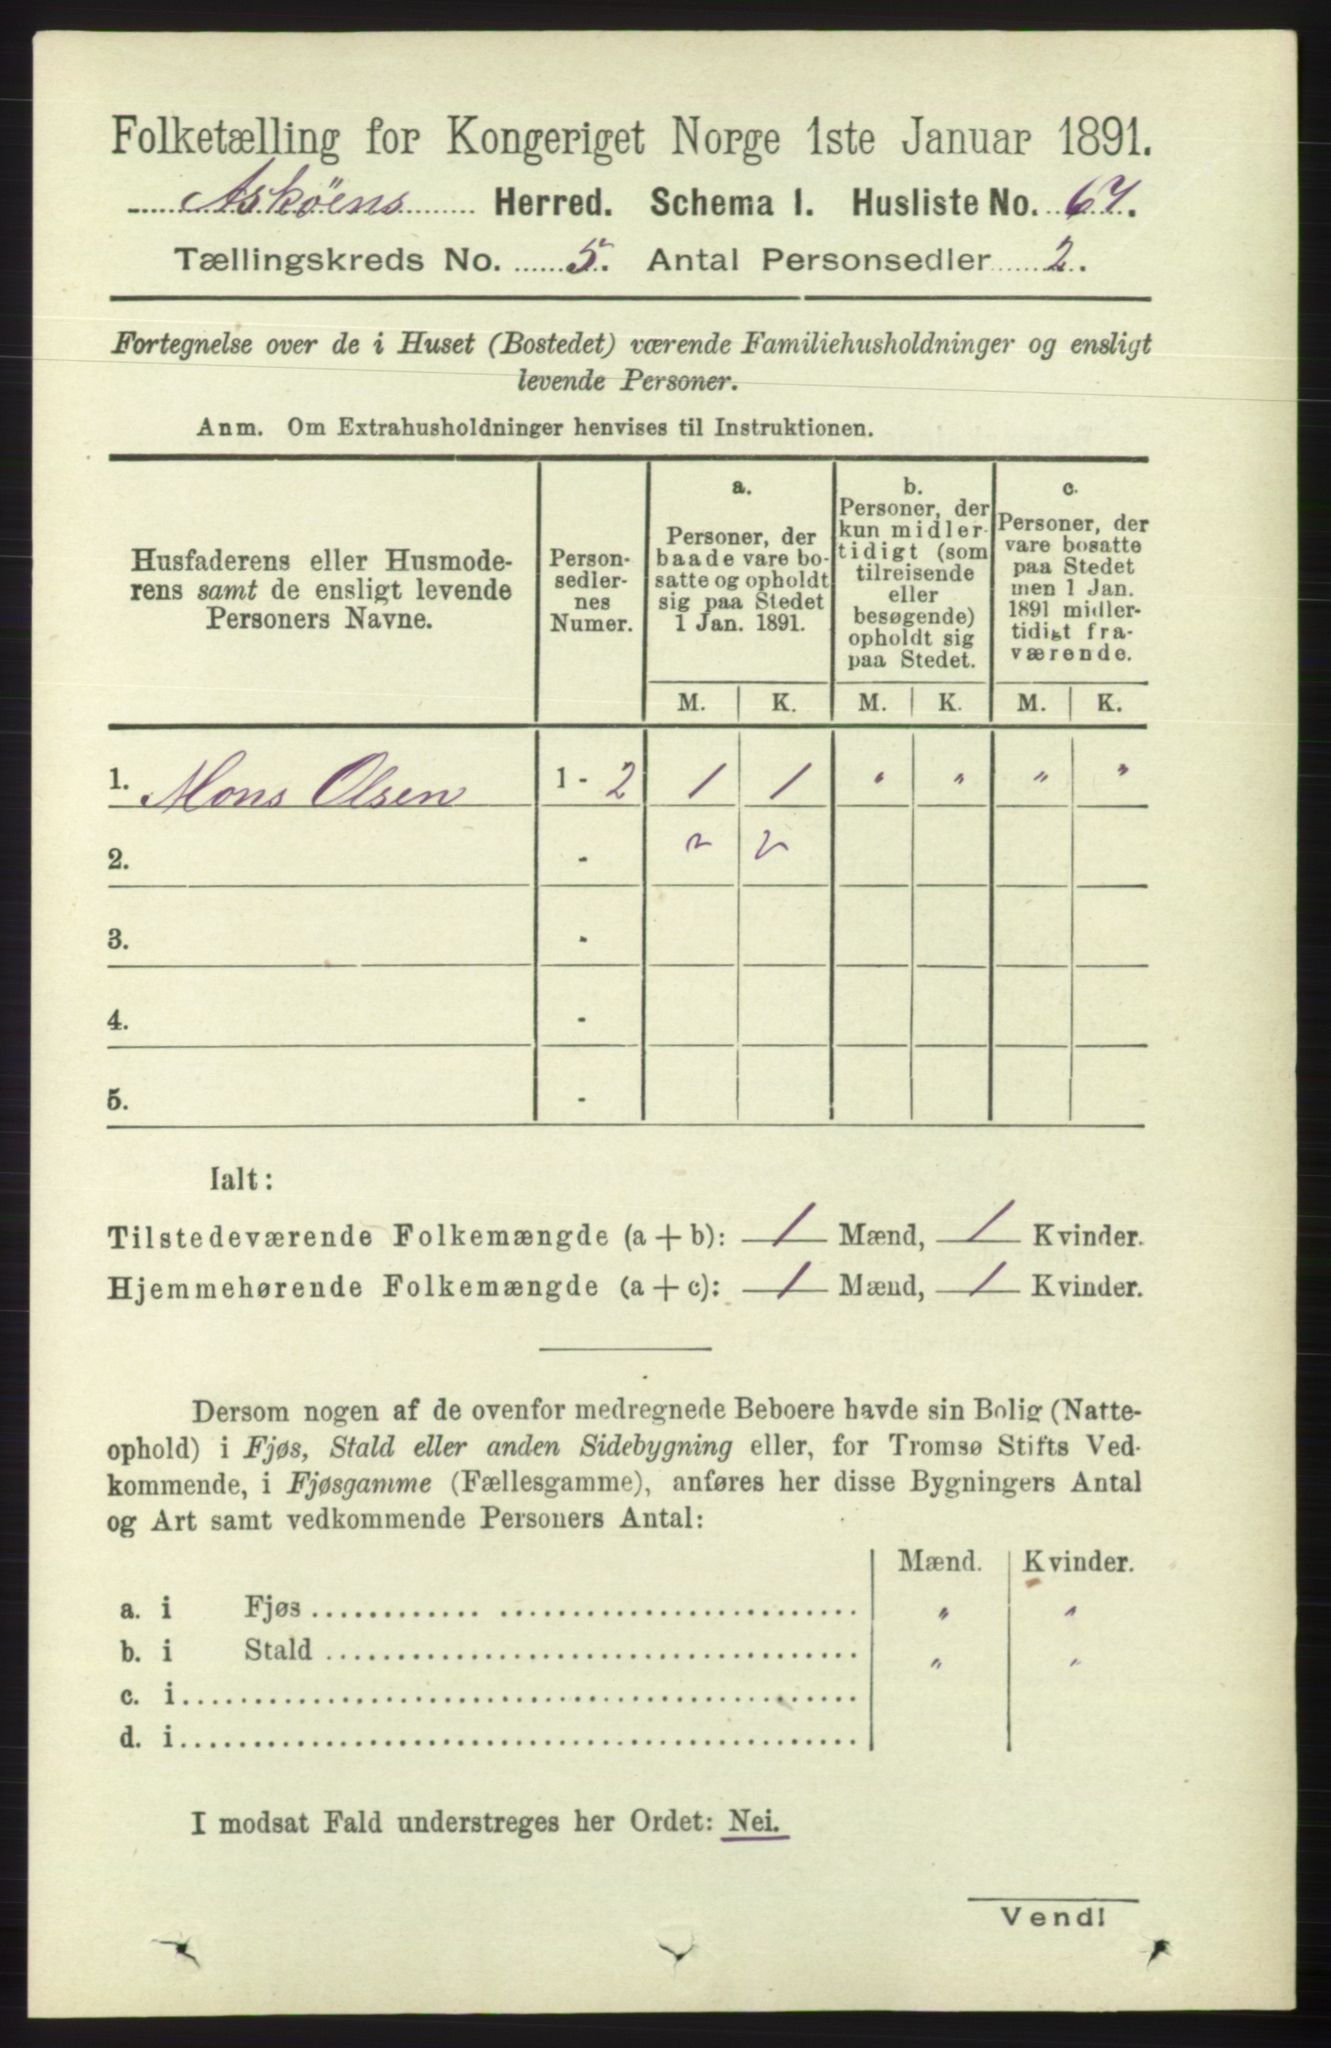 Folketælling for Kongeriget Norge 1ste Januar 1891.
Askøens Herred. Schema 1. Husliste No. 67.
Tællingskreds No. 5. Antal Personsedler 2.
Fortegnelse over de i Huset (Bostedet) værende Familiehusholdninger og ensligt
levende Personer.
Anm. Om Extrahusholdninger henvises til Instruktionen.
Husfaderens eller Husmode-
rens samt de ensligt levende
Personers Navne.
Person-
sedler-
nes
Numer.
a.
Personer, der
baade vare bo-
satte og opholdt
sig paa Stedet
1 Jan. 1891.
b.
Personer, der
kun midler-
tidigt (som
tilreisende
eller
besøgende)
opholdt sig
paa Stedet.
c.
Personer, der
vare bosatte
paa Stedet
men 1 Jan.
1891 midler-
tidigt fra-
værende.
M. K. M. K. M. K.
1. Mons Olsen 1 - 2 1 1 " " " "
2. -
3. -
4. -
5. -
Ialt:
Tilstedeværende Folkemængde (a + b): 1 Mænd, 1 Kvinder.
Hjemmehørende Folkemængde (a + c): 1 Mænd, 1 Kvinder.
Dersom nogen af de ovenfor medregnede Beboere havde sin Bolig (Natte-
ophold) i Fjøs, Stald eller anden Sidebygning eller, for Tromsø Stifts Ved-
kommende, i Fjøsgamme (Fællesgamme), anføres her disse Bygningers Antal
og Art samt vedkommende Personers Antal:
Mænd. Kvinder.
a. i Fjøs " "
b. i Stald " "
c. i
d. i
I modsat Fald understreges her Ordet: Nei.
Vend!